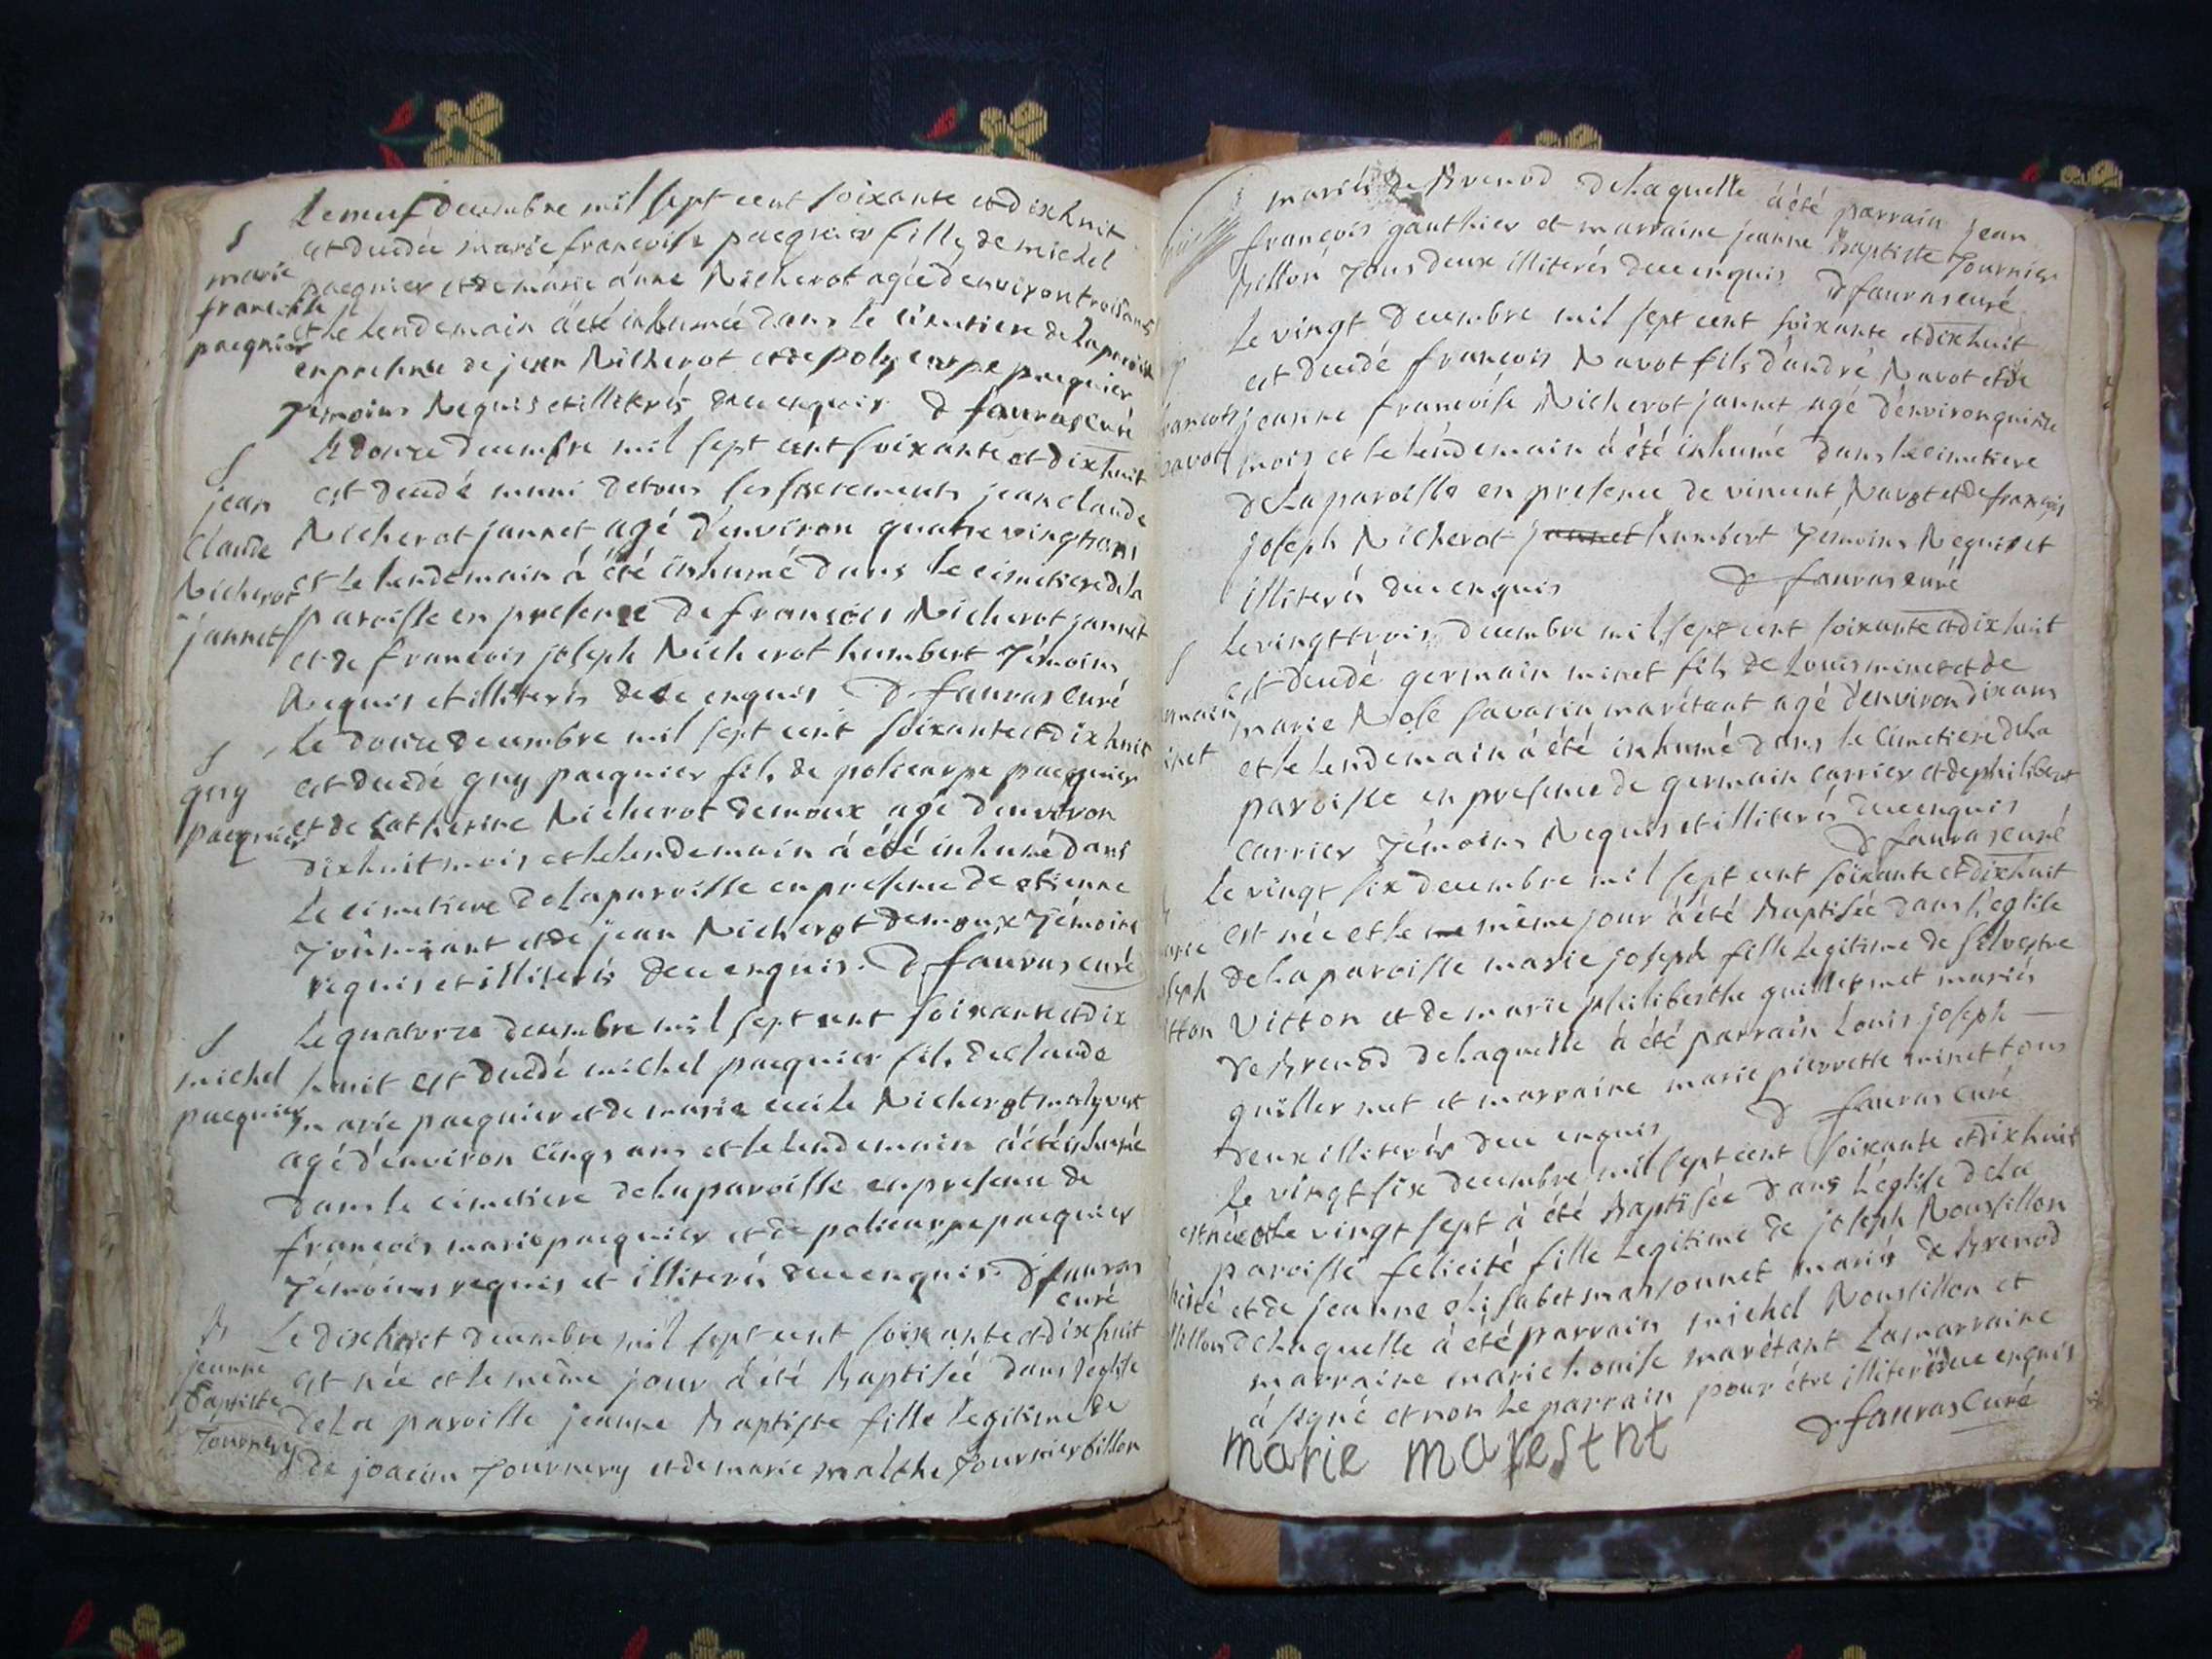 Le neuf decembre mil sept cent soixante et dix huit
S
est decedée marie francoise pacquier fille de michel
marie
francoise
pacquier
pacquier et de marie anne Nicherot agée d'environ trois ans
et le lendemain a été inhumée dans le cimetiere de la paroisse
en presence de jean Nicherot et de polycarpe pacquier
Temoins Requis et illiterés de ce enquis D favras curé
Le douze decembre mil sept cent soixante et dix huit
S
jean
Claude
Nicherot
jannet
est decedé muni de tous ses sacrements jean claude
Nicherot jannet agé d'environ quatre vingt ans
et le lendemain á été inhumé dans le cimetiere de la
paroisse en presence de francois Nicherot jannet
et de francois joseph Nicherot humbert Témoins
Requis et illiterés de ce enquis D favras Curé
Le douze decembre mil sept cent soixante et dix huit
S
guy
pacquier
est decedé guy pacquier fils de policarpe pacquier
et de Catherine Nicherot demoux agé d'environ
dix huit mois et le lendemain á été inhumé dans
Le cimetiere de la paroisse en presence de etienne
et de jean Nicherot demoux Témoins
requis et illiterés de ce enquis. D favras curé
Le quatorze decembre mil sept cent soixante et dix
S
michel
pacquier
huit est decédé michel pacquier fils de claude
marie pacquier et de marie cecile Nicherot
agé d'environ cinqs ans et le lendemain a été inhumé
dans le cimetiere de la paroisse en presence de
francois marie pacquier et de policarpe pacquier
Témoins requis et illiterés de ce enquis. D favras
curé
Le dix huit decembre mil sept cent soixante et dix huit
B
jeanne
Baptiste
Tournery
est née et le même jour á été Baptisée dans l'eglise
de La paroisse jeanne Baptiste fille Legitime de
de joacim Tournery et de marie marthe Tournier billon
mariés de Brenod de Laquelle á été parrain jean
francois gauthier et marraine jeanne Baptiste Tournier
Billon Tous deux illiterés de ce enquis D favras curé
Le vingt decembre mil sept cent soixante et dix huit
est decedé francois Navot fils d'andré Navot et de
jeanne francoise Nicherot jannet agé d'environ quinze
mois et le lendemain á été inhumé dans le cimetiere
de La paroisse en presence de vincent Navot et de francois
joseph Nicherot jannet humbert Témoins Requis et
illiterés de ce enquis D favras curé
Le vingt trois decembre mil sept cent soixante et dix huit
est decedé germain minet fils de Louis minet et de
marie Rose savarin marétant agé d'environ dix ans
et le lendemain á été inhumé dans le cimetiere de La
paroisse en presence de germain carrier et de philibert
carrier Témoins Requis et illiterés de ce enquis
D favras curé
Le vingt six decembre mil sept cent soixante et dix huit
est née et le même jour á été Baptisée dans l'eglise
de La paroisse marie joseph fille Legitime de silvestre
Vitton et de marie philiberthe guillermet mariés
de Brenod de Laquelle á été parrain Louis joseph
guillermet et marraine marie pierrette minet tous
deux illiterés de ce enquis D favras curé
Le vingt six decembre mil sept cent soixante et dix huit
est née et le vingt sept á été Baptisée dans L'eglise de La
paroisse felicité fille Legitime de joseph Roussillon
et de jeanne elisabet massonnet mariés de Brenod
de Laquelle á été parrain michel Roussillon et
marraine marie Louise marétant La marraine
á signé et non Le parrain pour être illiteré de ce enquis
D favras Curé
marie marestnt